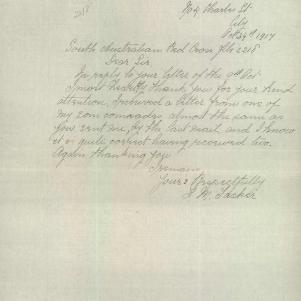 2218
Charles St
City
Oct 24th 1917
South Australian Red Cross File 2218
Dear Sir,
In reply to your letter of the 9th Oct
I most thank you for your kind
attention, I received a letter from one of
my son comrades almost the same as
you sent me, by the last mail and I know
it is quite correct having received two.
Again thanking you
I remain
Yours Respectfully